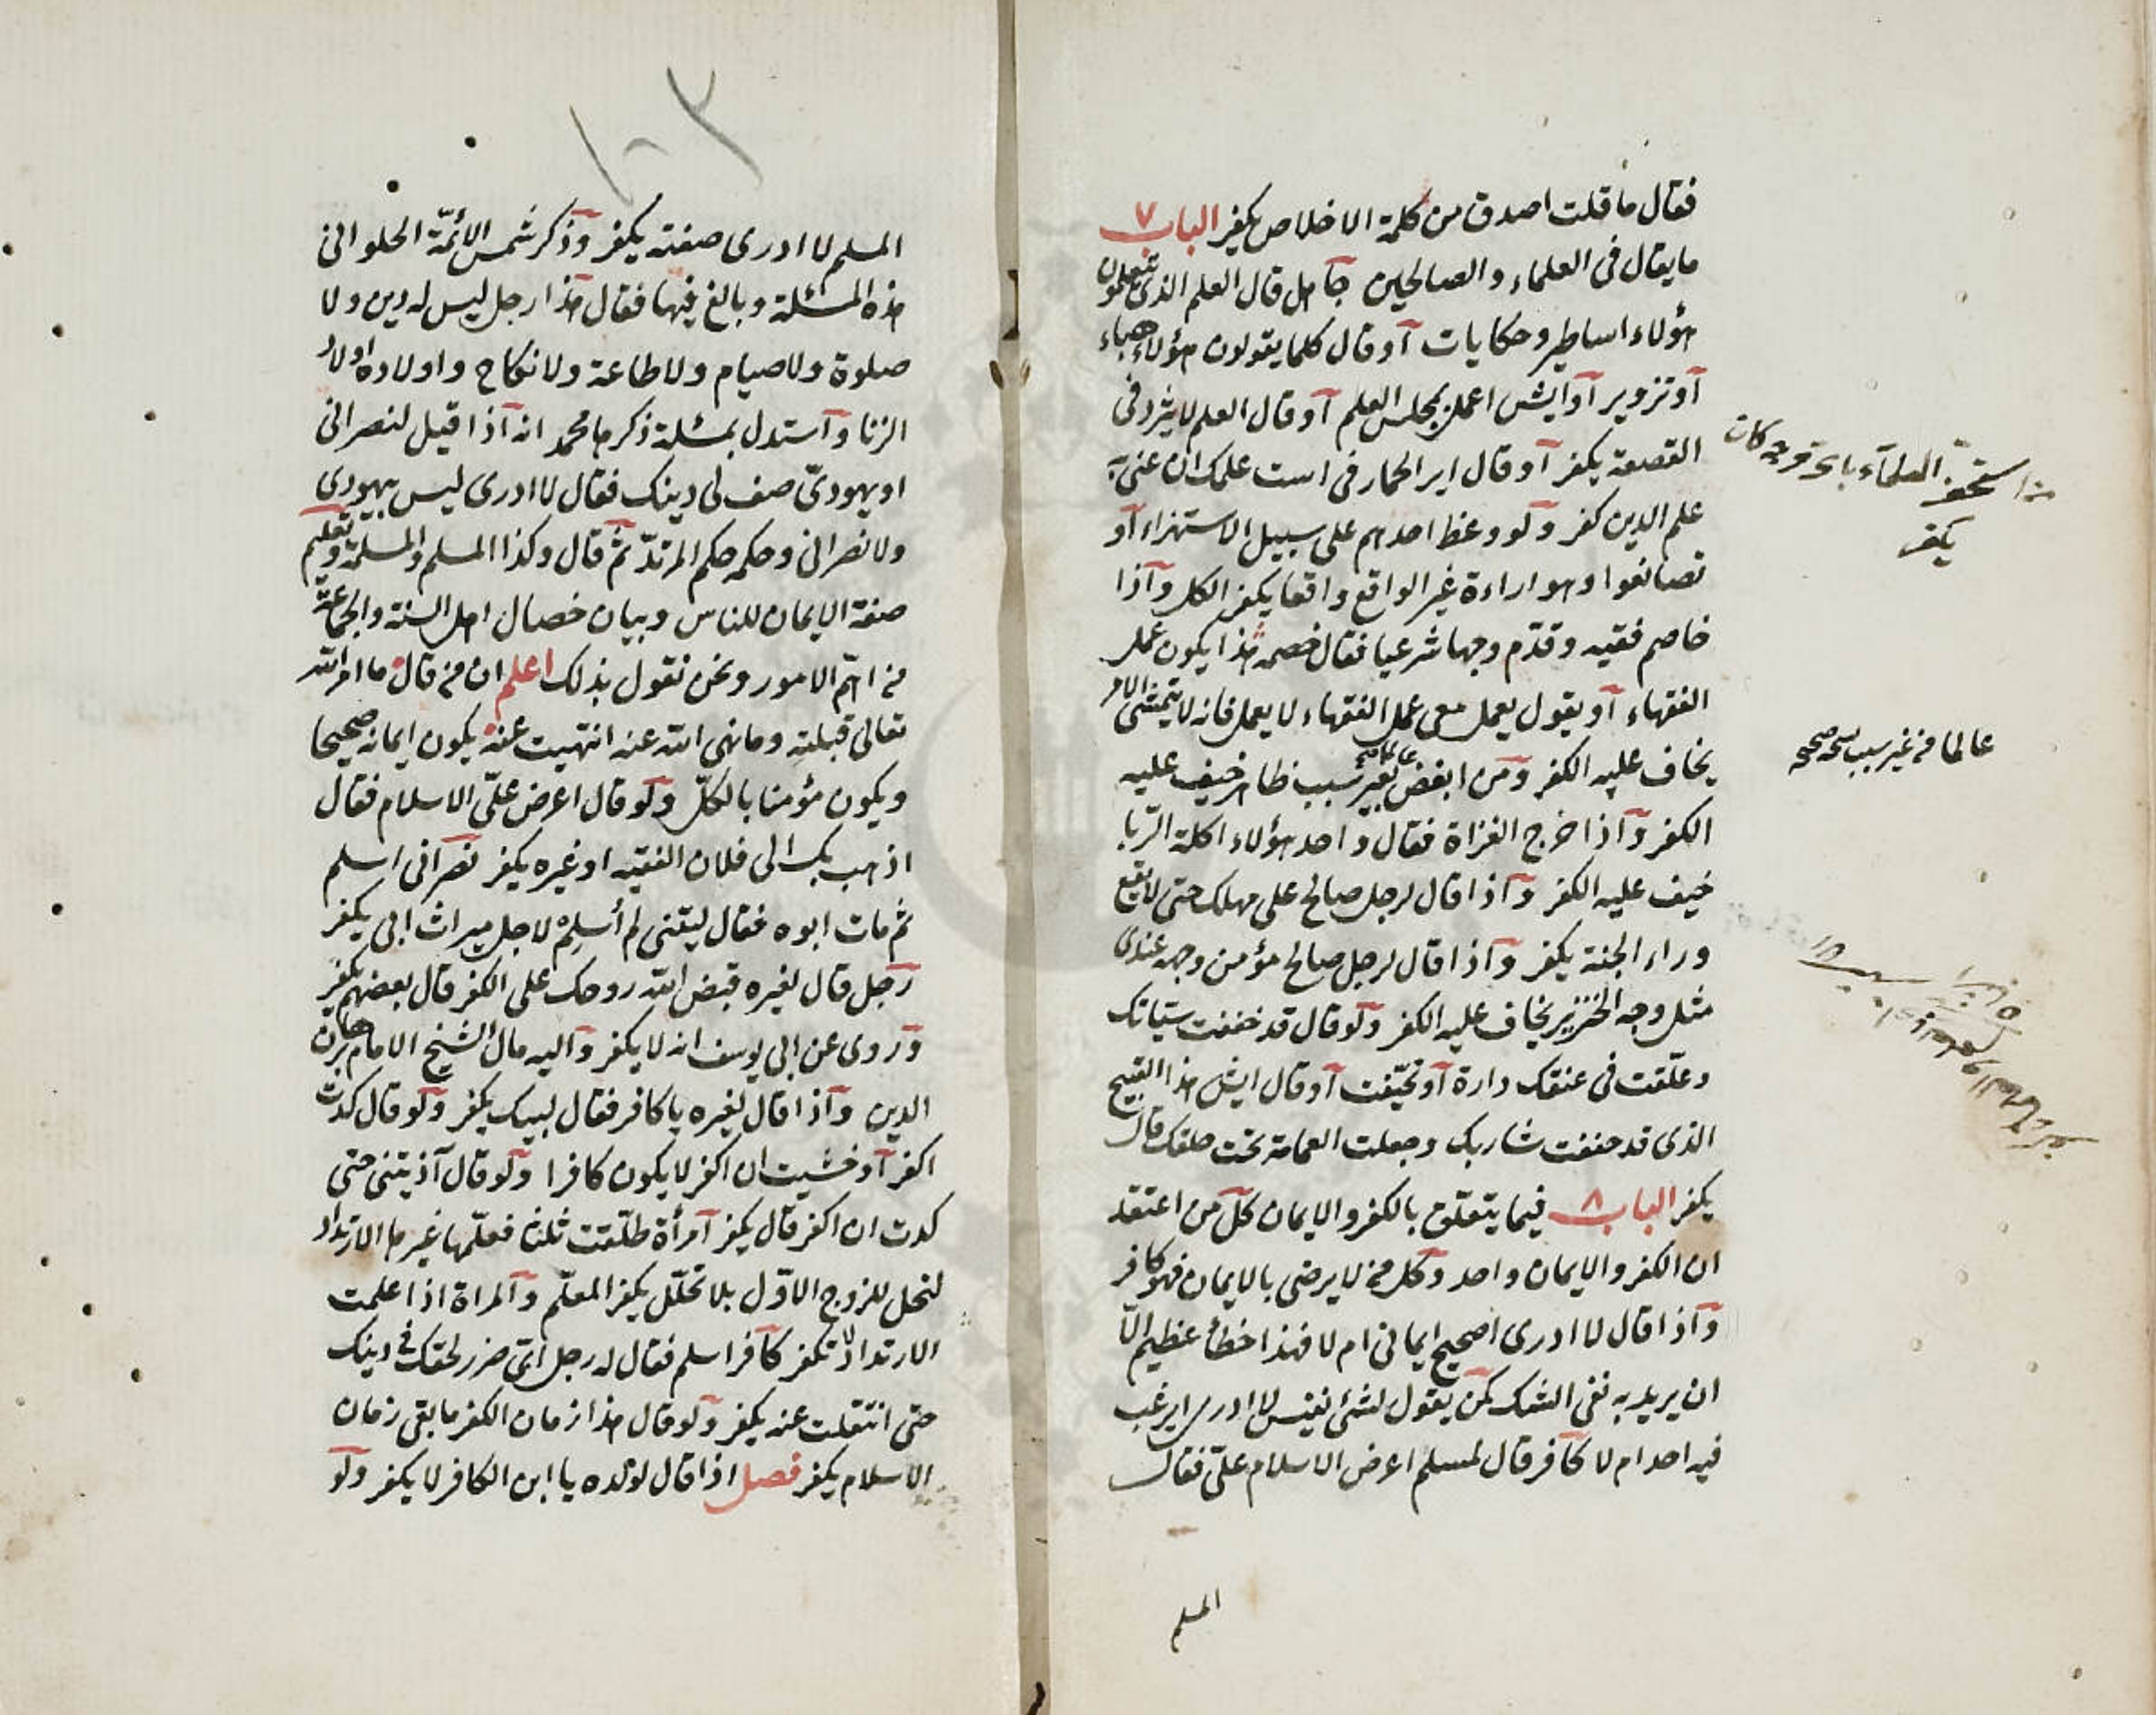 فقال ما قلت اصدق من كلمة الاخلاص يكفر الباب ٧
ما يقال فى العلماء والصالحين جاهل قال العلم الذى يتعلمون
هؤلاء اساطير وحكايات او قال كلما يقولون هؤلاء هباء
او تزوير او ايش اعمل بمجلس العلم او قال العلم لا يثرد فى
القصعة يكفر او قال اير الحمار فى است علمك ان عنى به
علم الدين كفر ولو وعظ احدهم على سبيل الاستهزاء او
تصانعوا وهو اراءة غير الواقع واقعا يكفر الكل واذا
خاصم فقيه وقدّم وجها شرعيا فقال خصمه هذا يكون عمل
الفقهاء او يقول يعمل معى عمل الفقهاء لا يعمل فانه لا يتمشى الامر
يخاف عليه الكفر ومن ابغض عالما بغير سبب ظاهر خيف عليه
الكفر واذا خرج الغزاة فقال واحد هؤلاء اكلة الربا
خيف عليه الكفر واذا قال لرجل صالح على مهلك حتى لا يقع
وراء الجنة يكفر واذا قال لرجل صالح مؤمن وجهه عندى
مثل وجه الخنزير يخاف عليه الكفر ولو قال قد خففت سبّاتك
وعلّقت فى عنقك دارة او تحيّفت او قال ايش هذا القبيح
الذى قد حففت شاربك وجعلت العمامة تحت حلقك قال
يكفر الباب ٨ فيما يتعلق بالكفر والايمان كل من اعتقد
ان الكفر والايمان واحد وكل من لا يرضى بالايمان فهو كافر
واذا قال لا ادرى اصحيح ايمانى ام لا فهذا خطأ عظيم الّا
ان يريد به نفى الشك كمن يقول لشئ نفيس لا ادرى ايرغب
فيه احد ام لا كافر قال لمسلم اعرض الاسلام علىّ فقال
المسلم
من استخف العلماء باى وجه كان
يكفر
عالما من غير سبب صح صح
١٠٣
المسلم لا ادرى صفته يكفر وذكر شمس الأئمّة الحلوانى
هذه المسئلة وبالغ فيها فقال هذا رجل ليس له دين ولا
صلوة ولا صيام ولا طاعة ولا نكاح واولاده اولاد
الزنا واستدل بمسئلة ذكرها محمد انه اذا قيل لنصرانى
او يهودىّ صف لى دينك فقال لا ادرى ليس بيهودى
ولا نصرانى وحكمه حكم المرتدّ ثم قال وكذا المسلم والمسلمة وتعليم
صفة الايمان للناس وبيان خصال اهل السنة والجماعة
من اهمّ الامور ونحن نقول بذلك اعلم ان من قال ما امر الله
تعالى قبلته وما نهى الله عنه انتهيت عنه يكون ايمانه صحيحا
ويكون مؤمنا بالكلّ ولو قال اعرض علىّ الاسلام فقال
اذهب بك الى فلان الفقيه او غيره يكفر نصرانى اسلم
ثم مات ابوه فقال ليتنى لم أُسلِمْ لاجل ميراث ابى يكفر
رجل قال لغيره قبض الله روحك على الكفر قال بعضهم يكفر
وروى عن ابى يوسف انه لا يكفر واليه مال الشيخ الامام برهان
الدين واذا قال لغيره يا كافر فقال لبيك يكفر ولو قال كدت
اكفر او خشيت ان اكفر لا يكون كافرا ولو قال آذيتنى حتى
كدت ان اكفر قال يكفر امرأة طلّقت ثلثا فعلّمها غيرها الارتداد
لتحل للزوج الاوّل بلا تحلّل يكفر المعلّم والمراة اذا علمت
الارتداد لا تكفر كافر اسلم فقال له رجل اىّ ضرر لحقك فى دينك
حتى انتقلت عنه يكفر ولو قال هذا زمان الكفر ما بقى زمان
الاسلام يكفر فصل اذا قال لولده يا ابن الكافر لا يكفر ولو